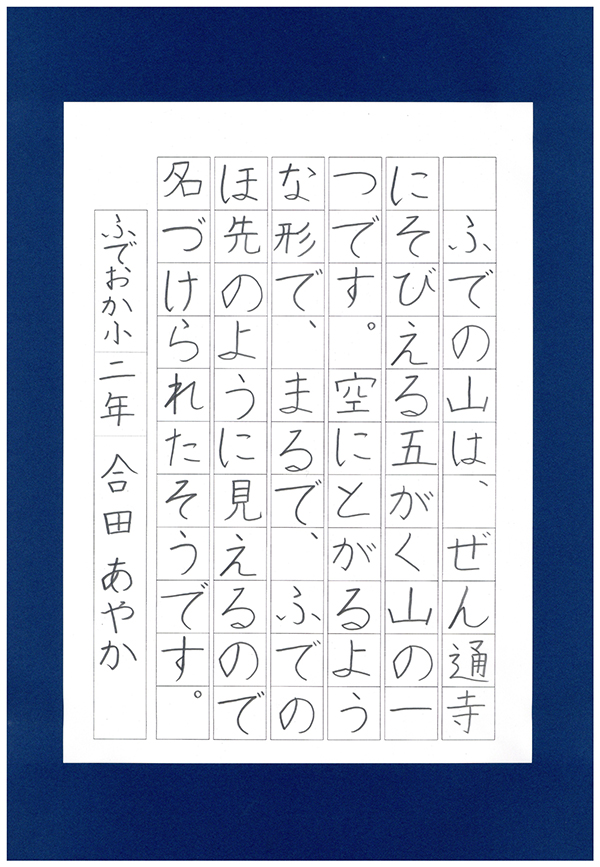 ふでの山は、ぜん通寺
にそびえる五がく山の一
つです。空にとがるよう
な形で、まるで、ふでの
ほ先のように見えるので
名づけられたそうです。
ふでおか小 二年 合田 あやか